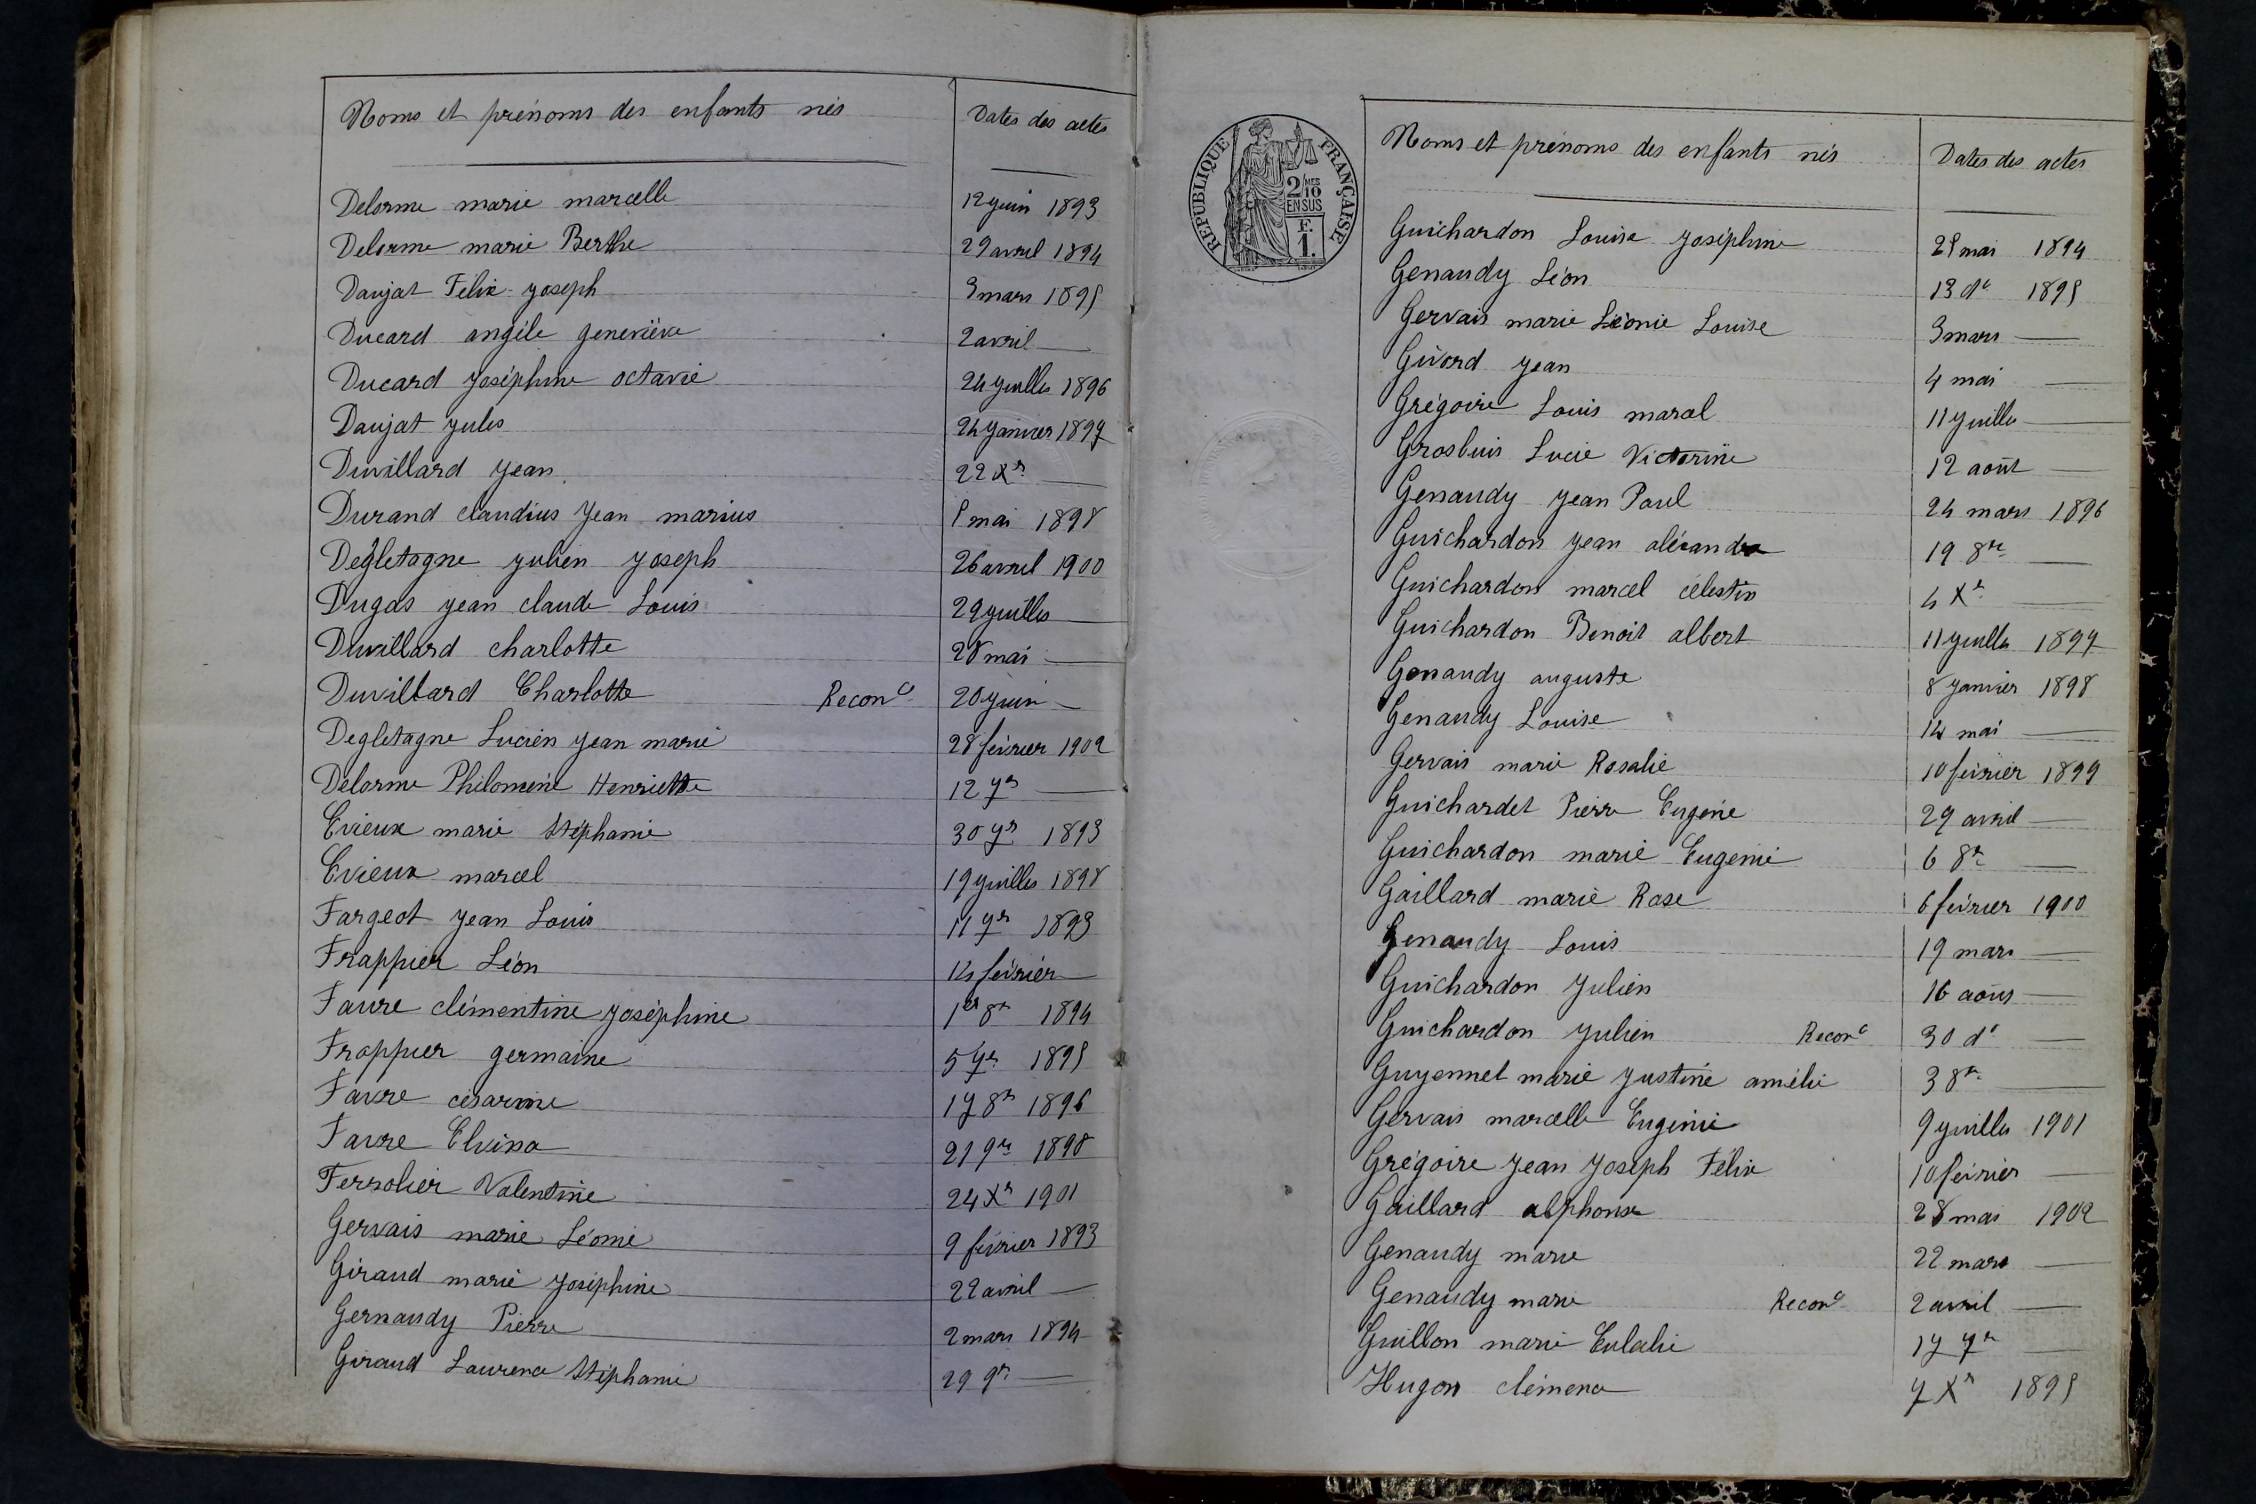 Noms et prénoms des enfants nés Dates des actes
Delorme marie marcelle 12 juin 1893
Delorme marie Berthe 29 avril 1894
Daujat Félix joseph 3 mars 1895
Ducard angèle geneviève 2 avril —
Ducard joséphine octavie 24 juillet 1896
Daujat jules 24 janvier 1897
Duvillard jean 22 Xre —
Durand claudius jean marius 1 mai 1898
Degletagne julien joseph 26 avril 1900
Dugas jean claude Louis 29 juillet —
Duvillard charlotte 28 mai —
Duvillard Charlotte Reconce 20 juin —
Degletagne Lucien jean marie 28 février 1902
Delorme Philomène Henriette 12 7re —
Evieux marie Stéphanie 30 7re 1893
Evieux marcel 19 juillet 1898
Fargeot jean Louis 11 9re 1893
Frappier Léon 14 février —
Faure clémentine joséphine 1er 8re 1894
Frappier germaine 5 7re 1895
Favre césarine 17 8re 1896
Favre Elvina 21 9re 1898
Ferrolier Valentine 24 Xre 1901
Gervais marie Léonie 9 février 1893
Giraud marie joséphine 22 avril —
Gernaudy Pierre 2 mars 1894
Giraud Laurence Stéphanie 29 9re —
REPUBLIQUE FRANÇAISE
2/10 MES
EN SUS
F.
1.
Noms et prénoms des enfants nés Dates des actes
Guichardon Louise joséphine 25 mai 1894
Genaudy Léon 13 de 1895
Gervais marie Léonie Louise 3 mars —
Givord jean 4 mai —
Grégoire Louis marcel 11 juillet —
Grosbuis Lucie Victorine 12 août —
Genaudy jean Paul 24 mars 1896
Guichardon jean aléxandre 19 8re —
Guichardon marcel célestin 4 Xre —
Guichardon Benoit albert 11 juillet 1897
Genaudy auguste 8 janvier 1898
Genaudy Louise 14 mai —
Gervais marie Rosalie 10 février 1899
Guichardet Pierre Eugène 29 avril —
Guichardon marie Eugenie 6 8re —
Gaillard marie Rose 6 février 1900
Genaudy Louis 19 mars —
Guichardon Julien 16 août —
Guichardon julien Reconce 30 de —
Guyennet marie justine amélie 3 8re —
Gervais marcelle Eugénie 9 juillet 1901
Grégoire jean joseph Félix 10 février —
Gaillard alphonse 28 mai 1902
Genaudy marie 22 mars —
Genaudy marie Reconce 2 avril —
Guillon marie Eulalie 17 7re —
Hugon clémence 7 Xre 1895